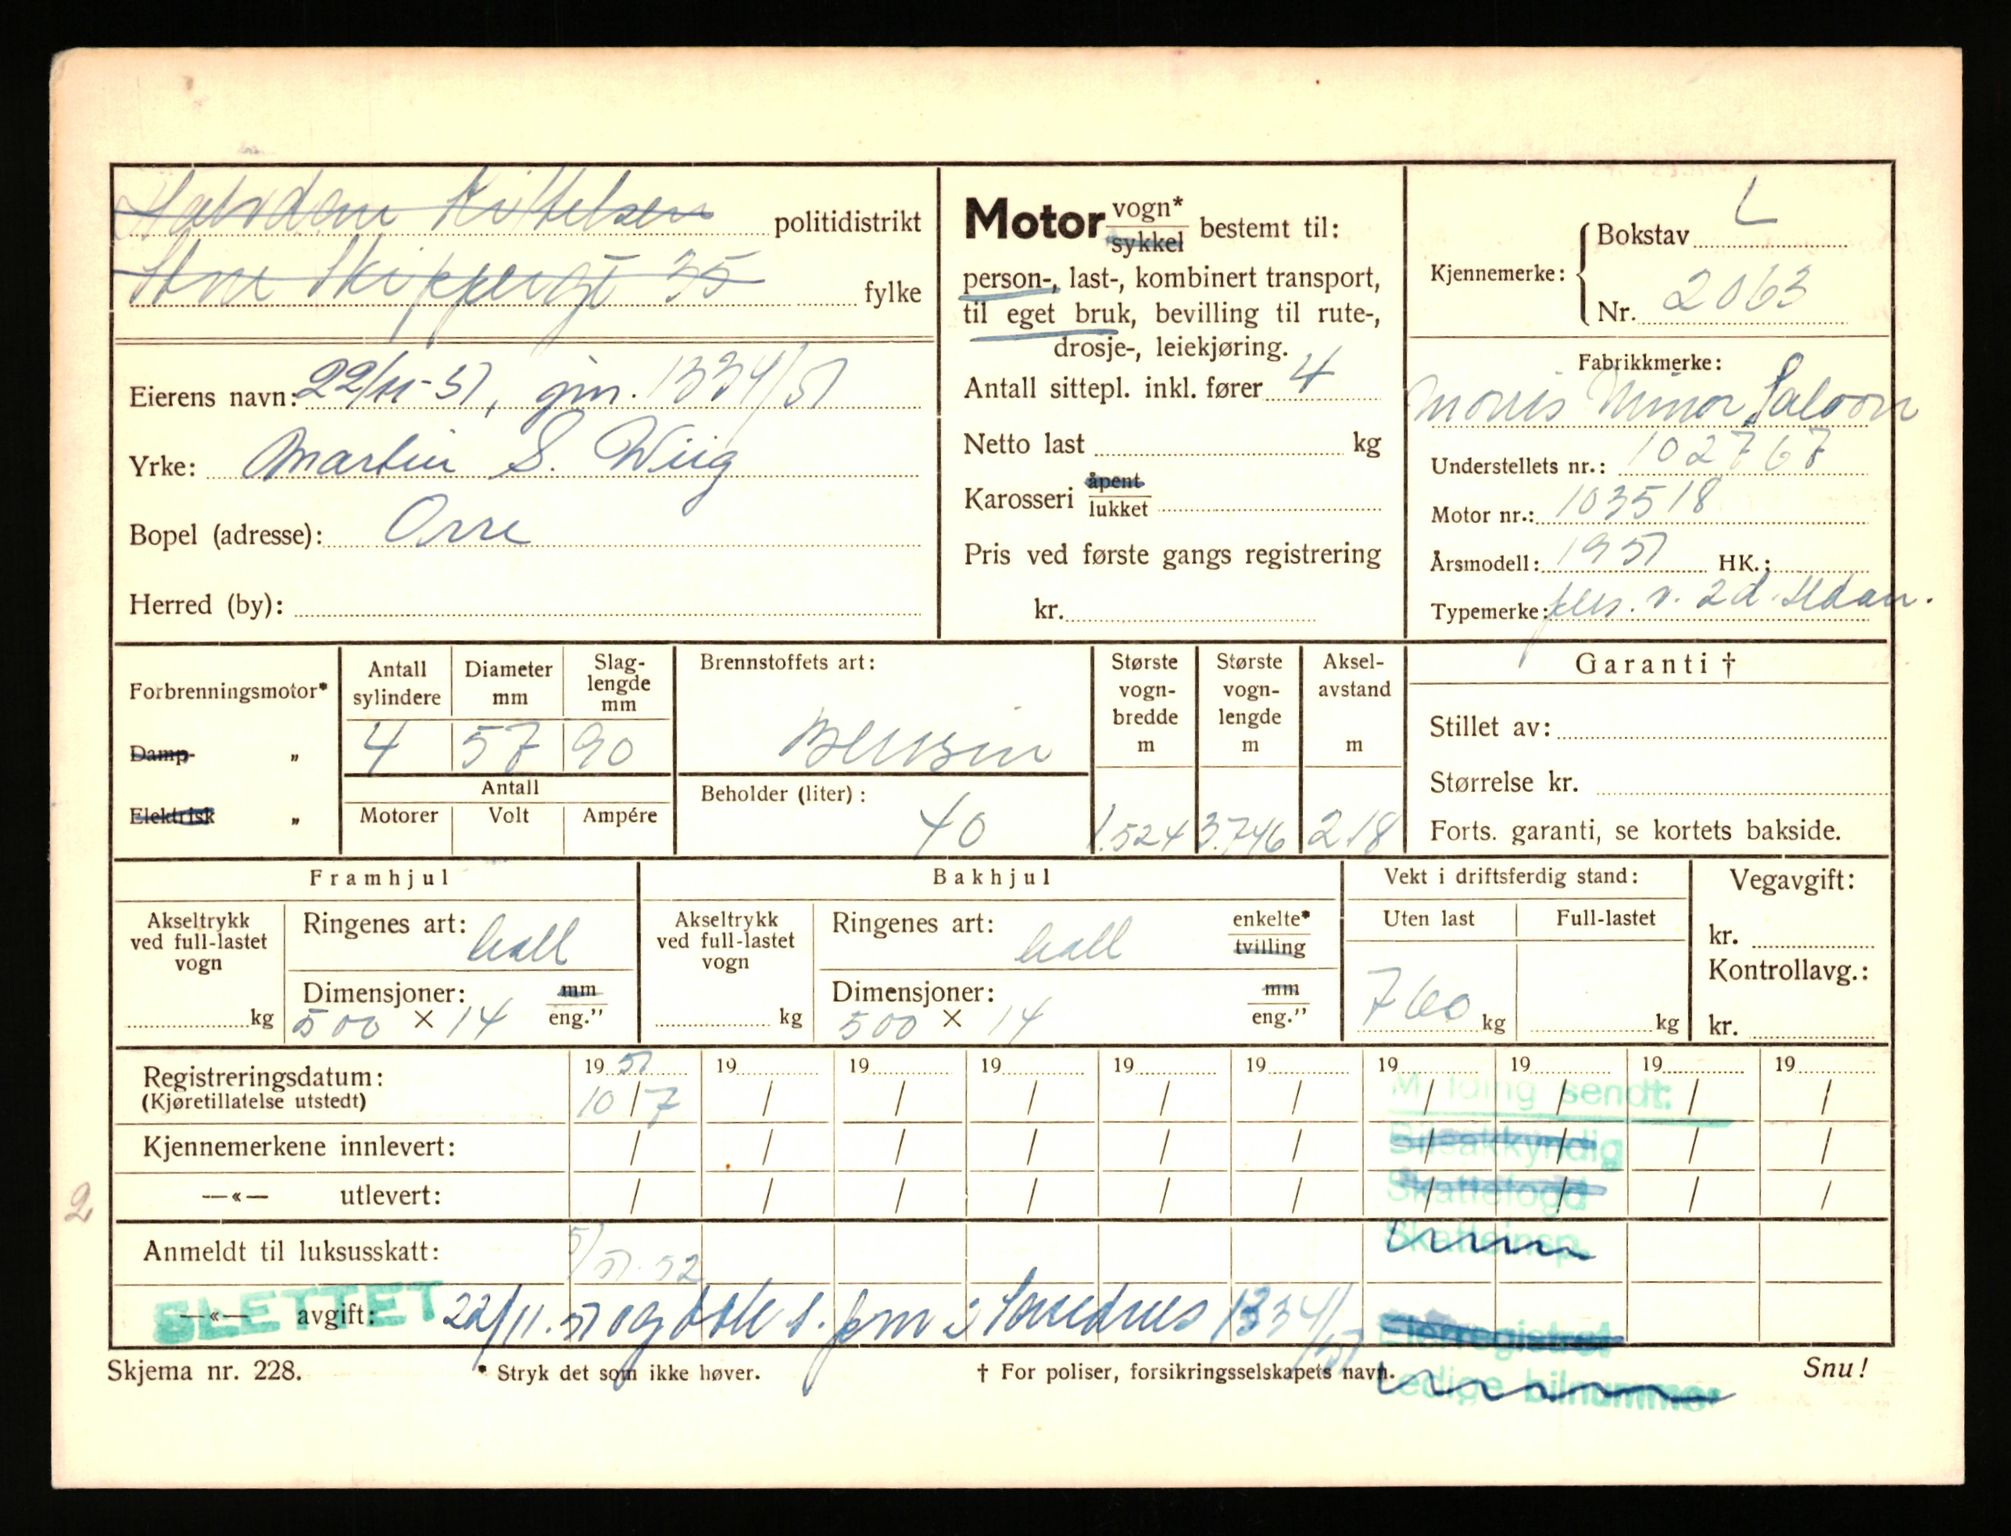 Halvdan Kittelsen politidistrikt
Store Skippergt 35 fylke
Eierens navn: 22/11-51, gjn. 1334/51
Yrke: Martin S. Wiig
Bopel (adresse): Orre
Herred (by):
Motor vogn* sykkel bestemt til:
person-, last-, kombinert transport,
til eget bruk, bevilling til rute-,
drosje-, leiekjøring.
Antall sittepl. inkl. fører 4
Netto last kg
Karosseri åpent lukket
Pris ved første gangs registrering
kr.
Kjennemerke: Bokstav L
Nr. 2063
Fabrikkmerke:
Morris Minor Saloon
Understellets nr.: 102767
Motor nr.: 103518
Årsmodell: 1951 HK.:
Typemerke: pers. v. 2d. sedan.
Forbrenningsmotor*
Damp "
Elektrisk "
Antall sylindere
4
Diameter mm
57
Slag-
lengde
mm
90
Antall
Motorer Volt Ampére
Brennstoffets art:
Bensin
Beholder (liter):
40
Største
vogn-
bredde
m
1.524
Største
vogn-
lengde
m
3.746
Aksel-
avstand
m
2.18
Garanti †
Stillet av:
Størrelse kr.
Forts. garanti, se kortets bakside.
Framhjul
Akseltrykk
ved full-lastet
vogn
kg
Ringenes art: hall
Dimensjoner: mm
500 × 14 eng."
Bakhjul
Akseltrykk
ved full-lastet
vogn
kg
Ringenes art: hall enkelte* tvilling
Dimensjoner: mm
500 × 14 eng."
Vekt i driftsferdig stand:
Uten last Full-lastet
760 kg kg
Vegavgift:
kr.
Kontrollavg.:
kr.
19 51 19 19 19 19 19 19 19 19 19
Registreringsdatum: 10/7 / / / / / / / / /
(Kjøretillatelse utstedt)
Kjennemerkene innlevert: / / / / / / / / / /
—«— utlevert: / / / / / / / / / /
Anmeldt til luksusskatt: 5/51.52
—«— avgift: 22/11.51 og 1334/51
SLETTET
Melding sendt:
Bilsakkyndig
Skattefogd
Skatteinsp.
Eierregistret
Ledige bilnummer
Skjema nr. 228. * Stryk det som ikke høver. † For poliser, forsikringsselskapets navn. Snu!
2